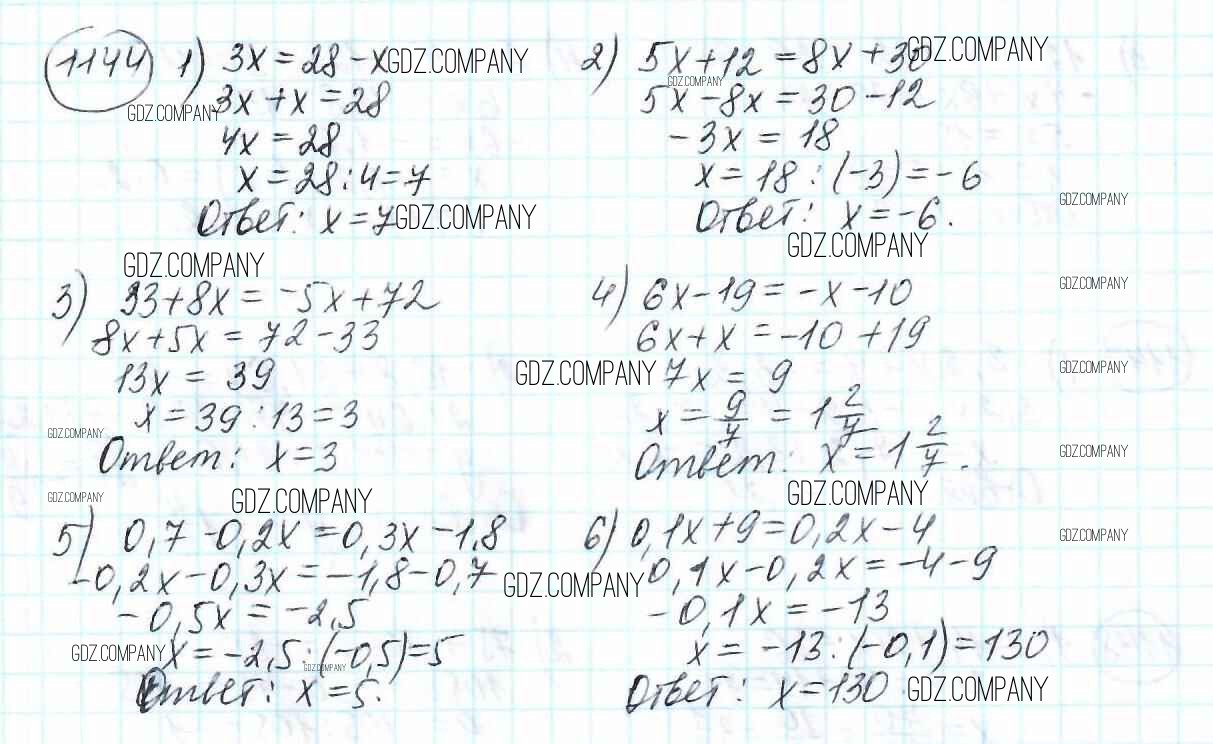 1144 1) 3x = 28 - x GDZ.COMPANY
GDZ.COMPANY 3x + x = 28
4x = 28
x = 28 : 4 = 7
Ответ: x = 7 GDZ.COMPANY
2) 5x + 12 = 8x + 30 GDZ.COMPANY
GDZ.COMPANY
5x - 8x = 30 - 12
- 3x = 18
x = 18 : (-3) = - 6
GDZ.COMPANY
Ответ: x = -6.
GDZ.COMPANY
GDZ.COMPANY
3) 33 + 8x = -5x + 72
8x + 5x = 72 - 33
13x = 39
x = 39 : 13 = 3
GDZ.COMPANY
Ответ: x = 3
GDZ.COMPANY
GDZ.COMPANY
4) 6x - 19 = -x - 10
GDZ.COMPANY
6x + x = -10 + 19
GDZ.COMPANY 7x = 9
GDZ.COMPANY
x = 9/7 = 1 2/7
Ответ: x = 1 2/7.
GDZ.COMPANY
GDZ.COMPANY
5) 0,7 - 0,2x = 0,3x - 1,8
-0,2x - 0,3x = -1,8 - 0,7
GDZ.COMPANY
- 0,5x = -2,5
GDZ.COMPANY x = -2,5 : (-0,5) = 5
GDZ.COMPANY
Ответ: x = 5.
6) 0,1x + 9 = 0,2x - 4
GDZ.COMPANY
0,1x - 0,2x = -4 - 9
- 0,1x = -13
x = -13 : (-0,1) = 130
Ответ: x = 130 GDZ.COMPANY